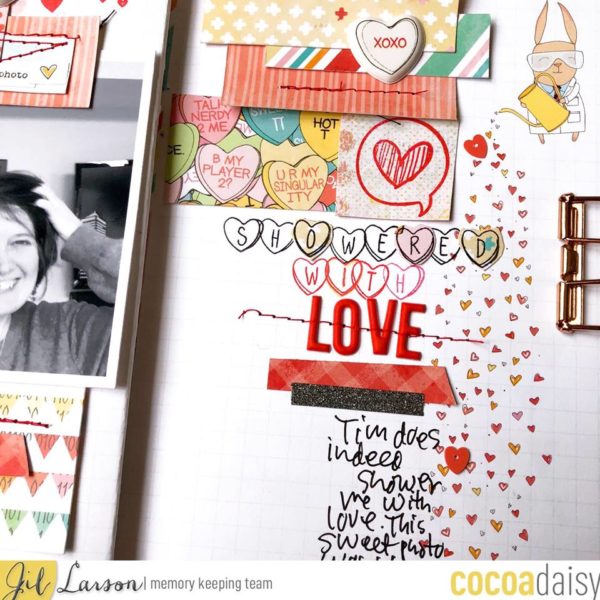 photo
XOXO
TALK
NERDY
2 ME
HOT
T
B MY
PLAYER
2?
U R MY
SINGULAR
ITY
SHOWERED
WITH
LOVE
Tim does
indeed
shower
me with
love. This
sweet photo
Jil Larson | memory keeping team
cocoadaisy